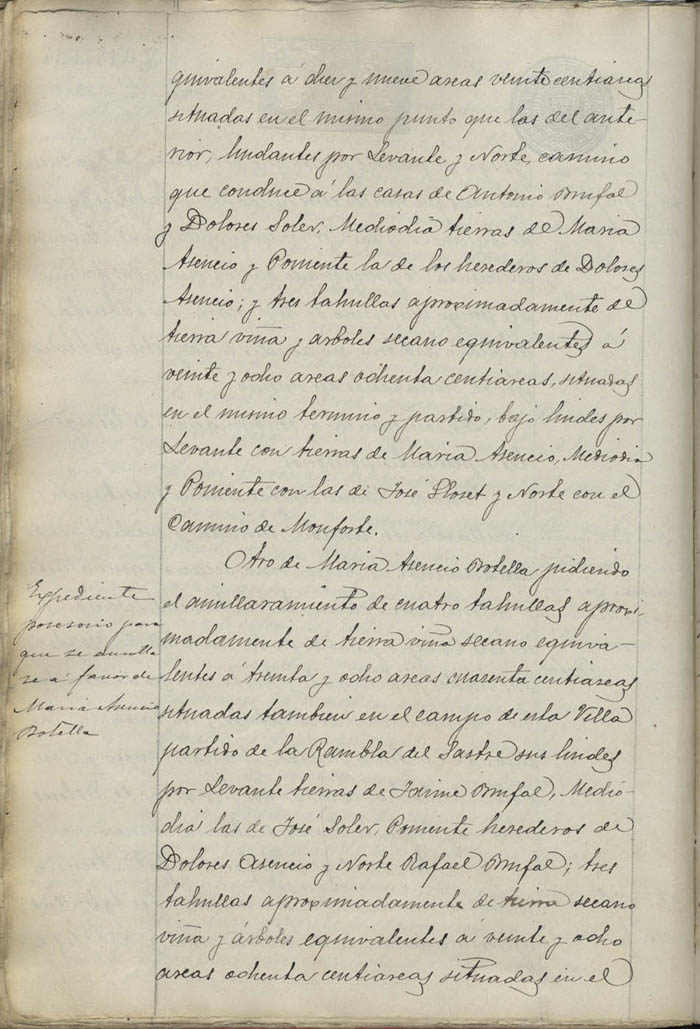 equivalentes á diez y nueve areas veinte centiareas
situadas en el mismo punto que las del ante-
rior, lindantes por Levante y Norte, camino
que conduce á las casas de Antonio Brufal
y Dolores Soler, Mediodia tierras de Maria
Asencio y Poniente la de los herederos de Dolores
Asencio; y tres tahullas aproximadamente de
tierra viña y arboles secano equivalentes á
veinte y ocho areas ochenta centiareas, situadas
en el mismo termino y partido, bajo lindes por
Levante con tierras de Maria Asencio, Mediodia
y Poniente con las de José Lloset y Norte con el
Camino de Monforte.
Otro de Maria Asencio Botella pidiendo
el amillaramiento de cuatro tahullas aproxi-
madamente de tierra viña secano equiva-
lentes á treinta y ocho areas cuarenta centiareas
situadas tambien en el campo de esta Villa
partido de la Rambla del Sastre sus lindes
por Levante tierras de Jaime Brufal, Medio-
dia las de José Soler, Poniente herederos de
Dolores Asencio y Norte Rafael Brufal; tres
tahullas aproximadamente de tierra secano
viña y árboles equivalentes á veinte y ocho
areas ochenta centiareas situadas en el
Expediente
posesorio para
que se amilla
re á favor de
Maria Asencio
Botella